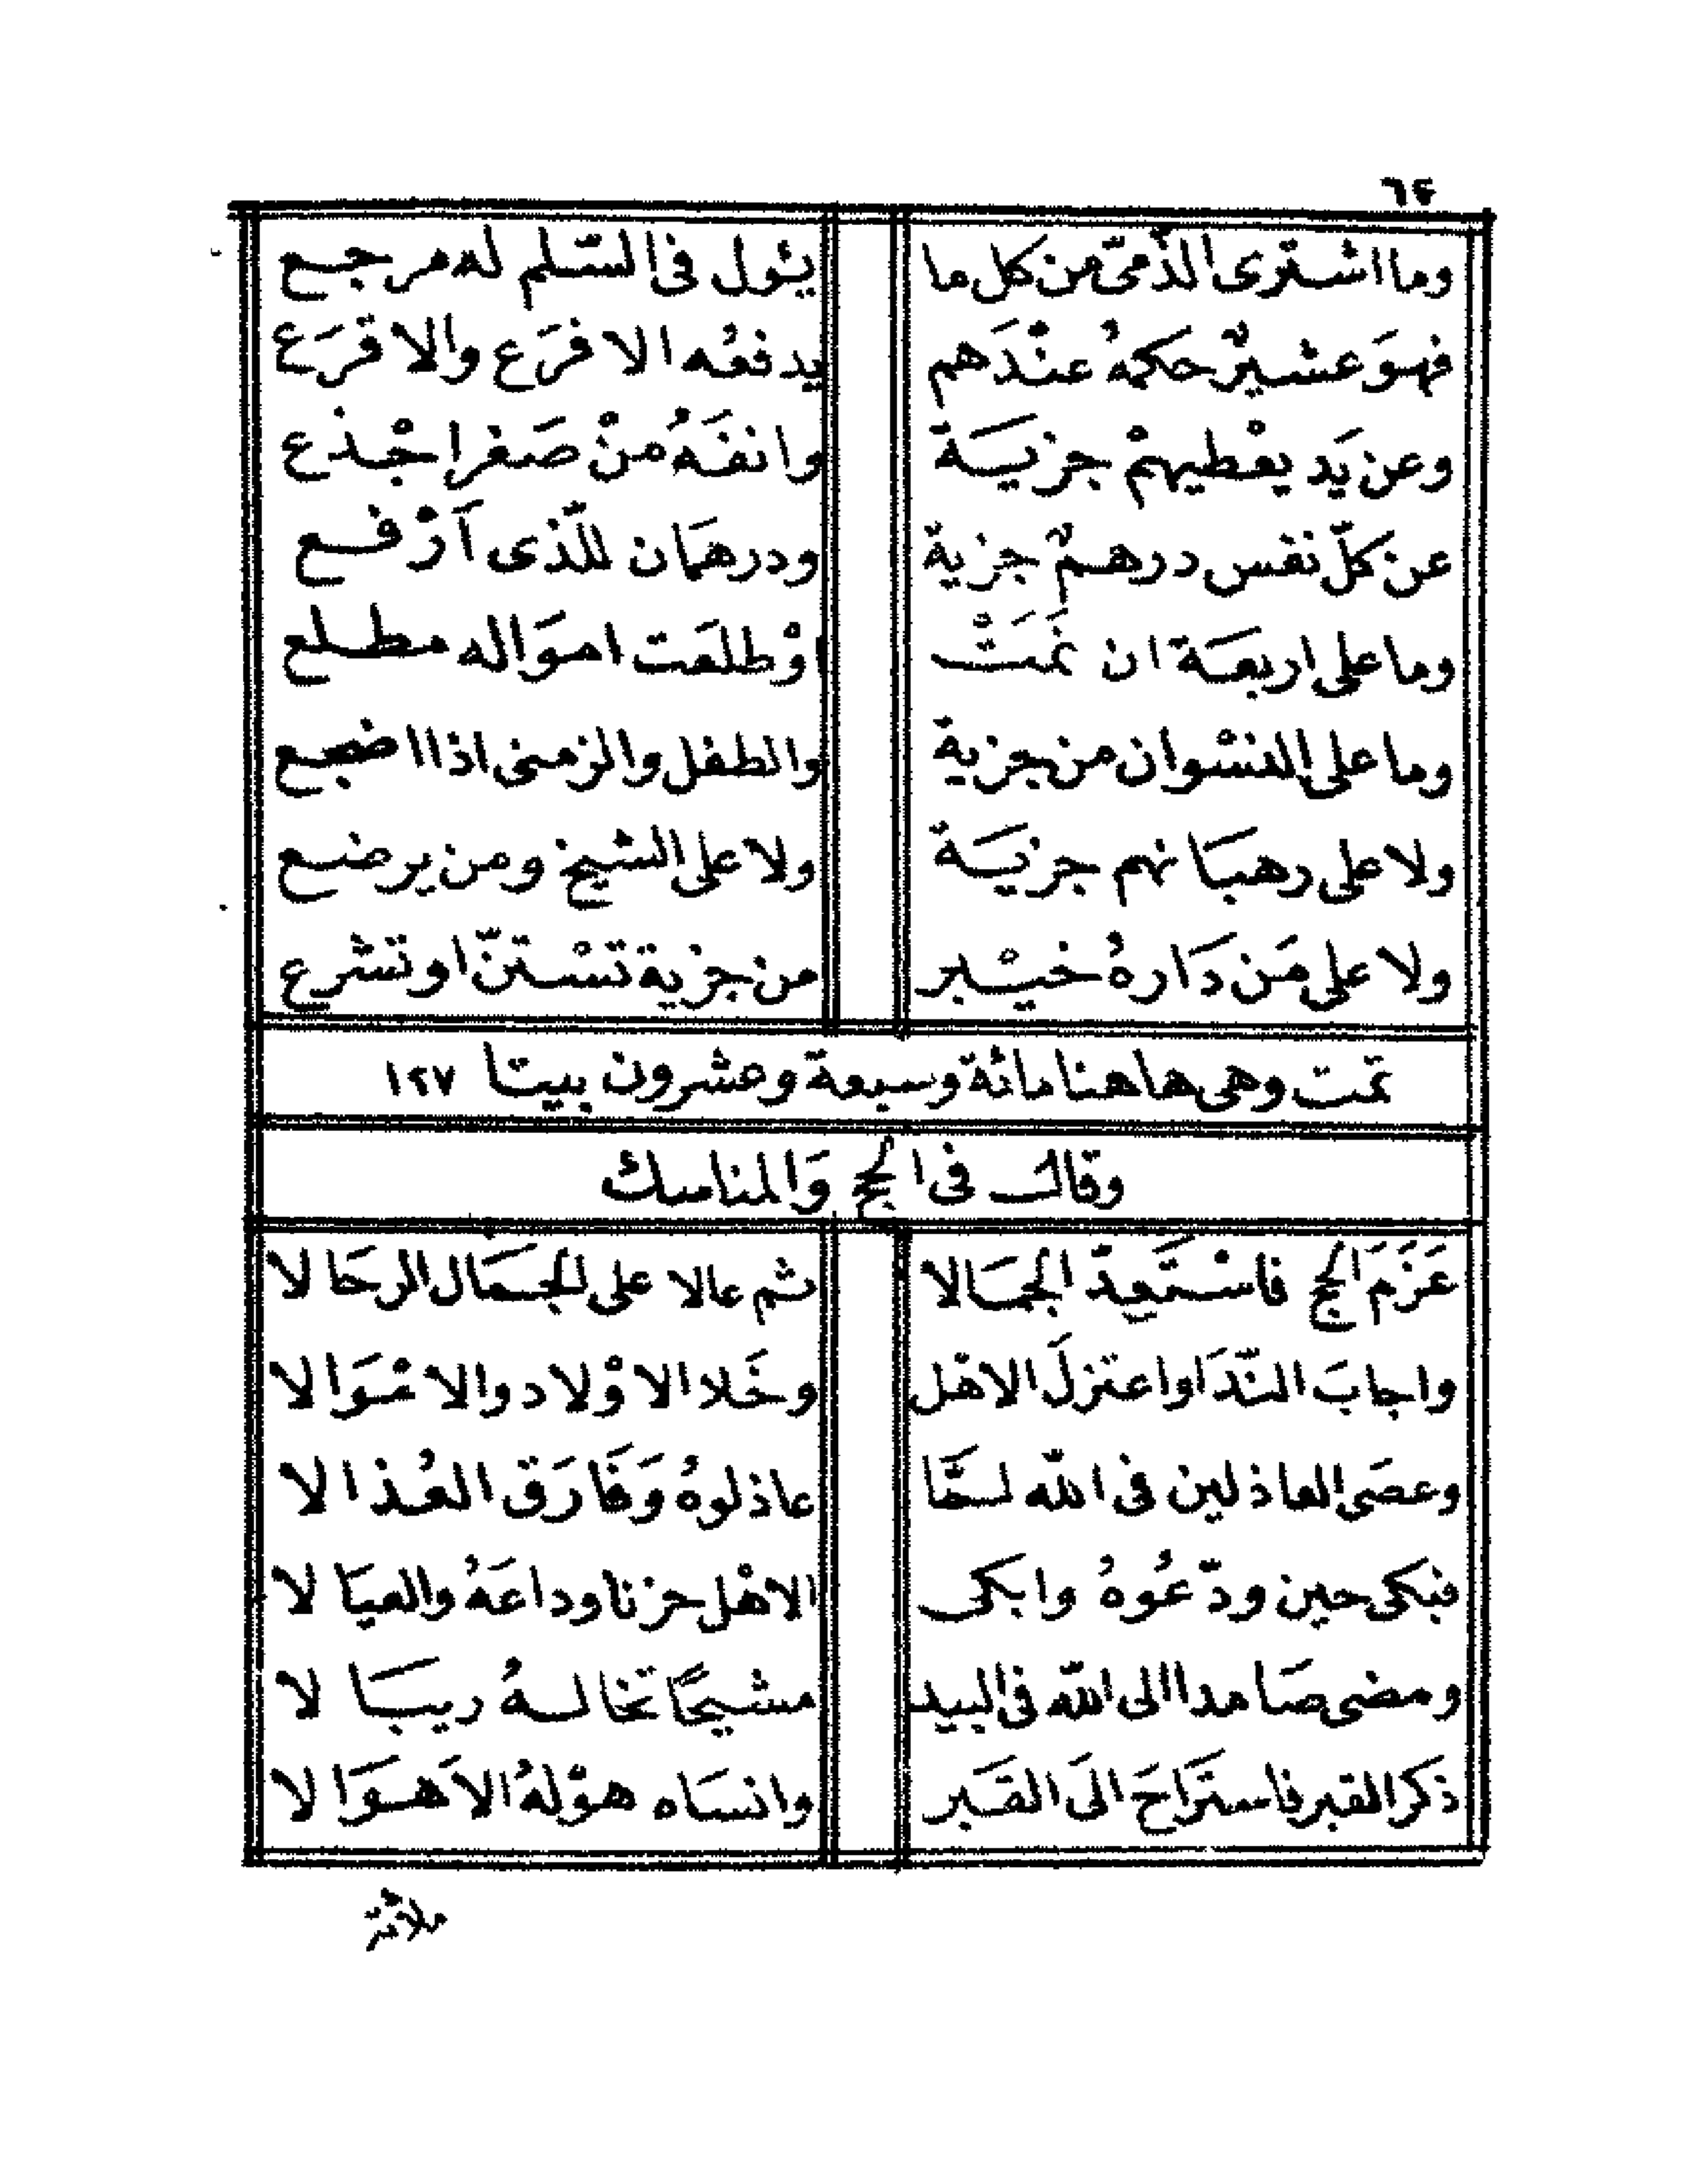 ٦٤
وما اشترى الذّمىّ من كل ما يئول فى السّلم له مرجع
فهوَ عشيرٌ حكمهُ عنْدَهم يدفعُه الافرَع والاقرَع
وعن يَد يعْطيهمْ جزيَة وانفَهُ منْ صَغر اجْذع
عن كلّ نفس درهمٌ جزية ودرهمَان للّذى ارْفع
وما على اربعَة ان نمَتْ اوْ طلعَت اموَاله مطلع
وما على النسْوان من جزية والطفل والزمنى اذا اضجع
ولا على رهبَانهم جزيَة ولا على الشيخ ومن يرضع
ولا على مَن دَارهُ خيْبر من جزية تسْتنّ او تشرع
تمت وهى هاهنا مائة وسبعة وعشرون بيتا ١٢٧
وقال فى الحج وَالمناسك
عَزَمَ الحج فاسْتَعِدّ الجمَالا ثم عالا على الجمَال الرحَالا
واجابَ النّدَا واعتزلَ الاهْل وخَلا الاوْلاد والامْوَالا
وعصَى العاذلين فى اللّه لمّا عاذلوهُ وَفَارَق العُذالا
فبكى حين ودّعُوهُ وابكى الاهْل حزنا وداعَهُ والعيَالا
ومضى صَامدا الى اللّه فى البيد مشيحًا تخالهُ ريبَالا
ذكر القبر فاستَرَاحَ الَى القَبر وانسَاه هوْلهُ الاَهوَالا